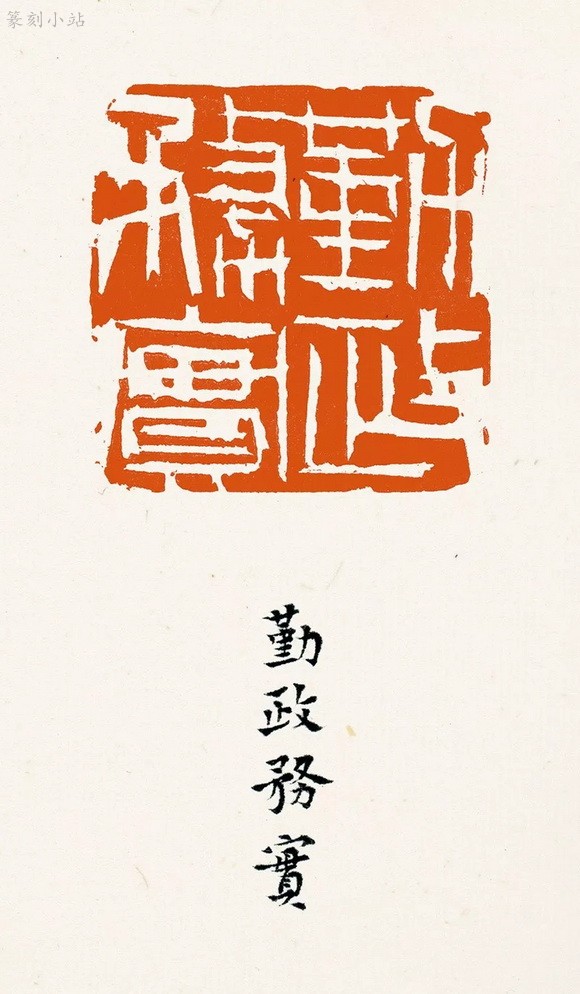 篆刻小站
勤政務實
勤政務實